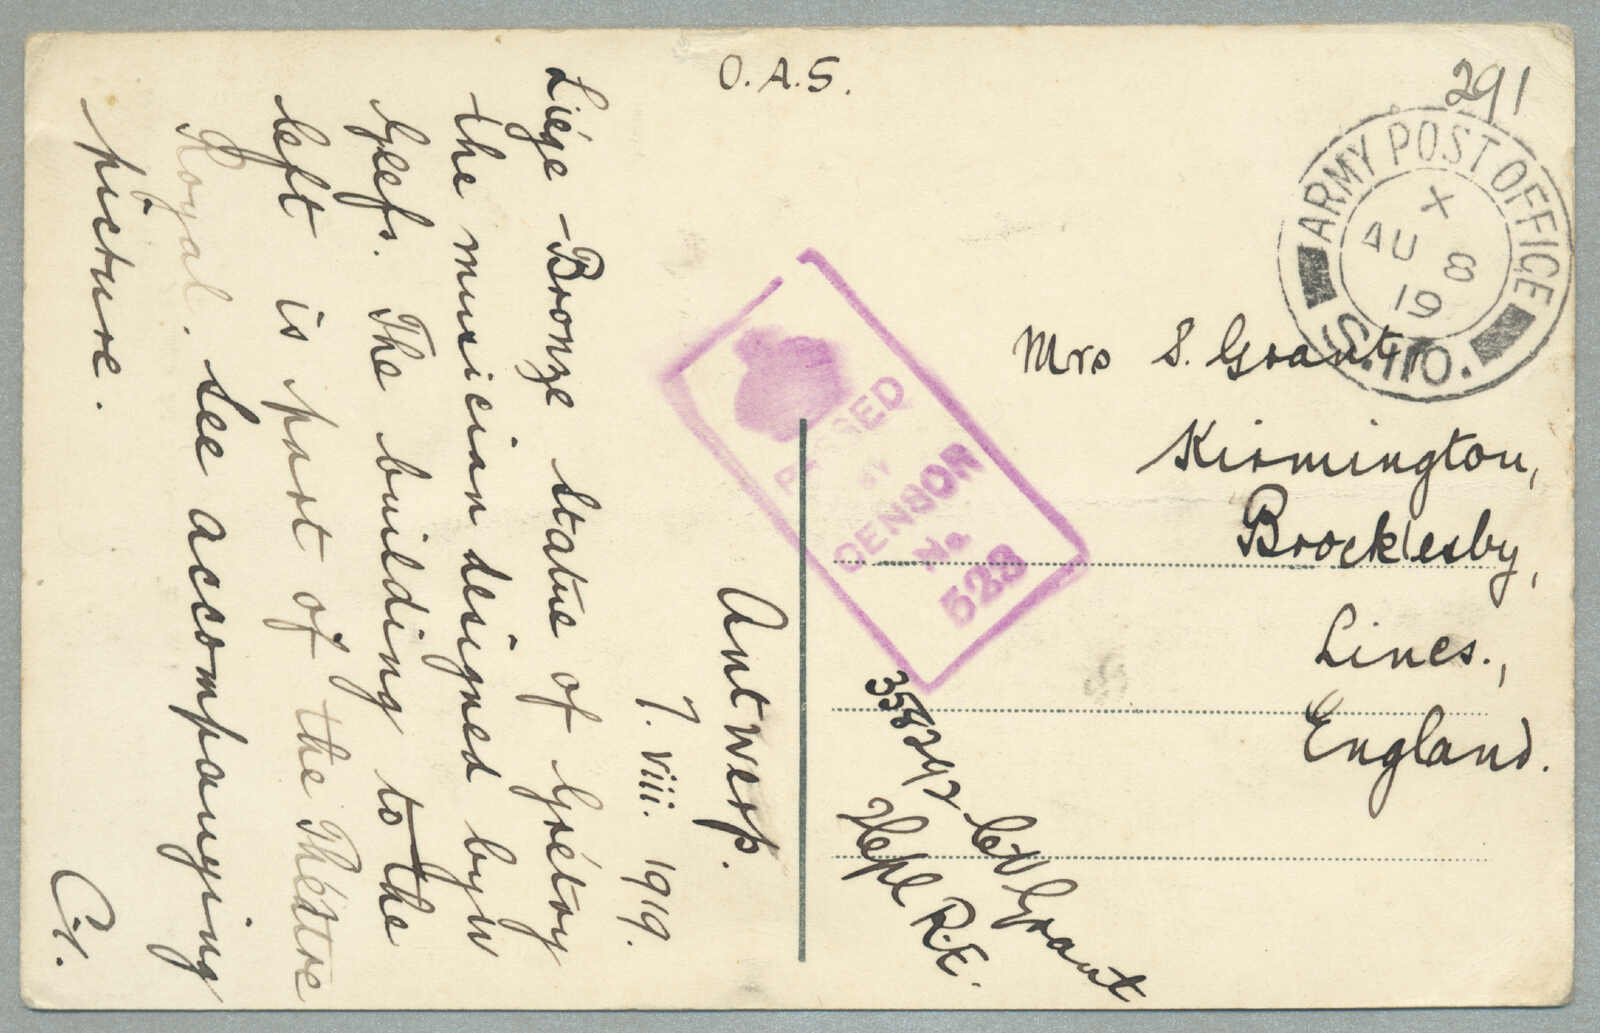 O.A.S.
291
ARMY POST OFFICE
X
AU 8
19
S.110.
Antwerp.
7. viii. 1919.
Liége - Bronze statue of Grétry
the musician designed by W
Geefs. The building to the
left is part of the Théâtre
Royal. See accompanying
picture.
C.V.
PASSED
BY
CENSOR
No.
523
Mrs S. Grant
Kirmington,
Brocklesby,
Lincs.,
England.
358242 C V Grant
R.E.